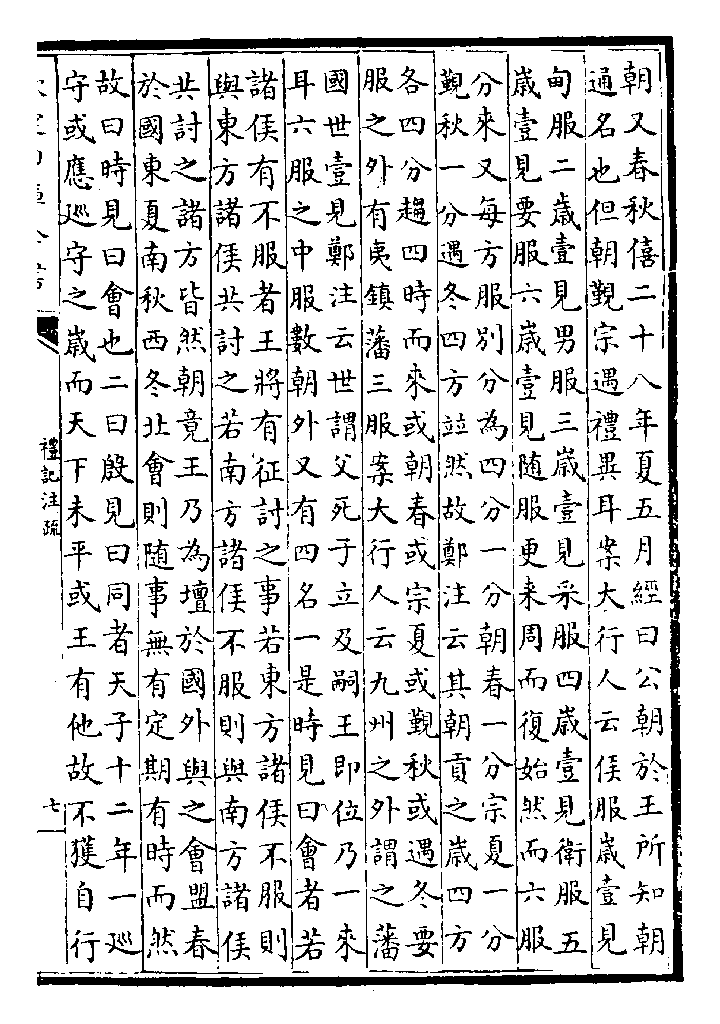 朝又春秋僖二十八年夏五月經曰公朝於王所知朝
通名也但朝覲宗遇禮異耳案大行人云侯服歲壹見
甸服二歲壹見男服三歲壹見采服四歲壹見衛服五
歲壹見要服六歲壹見随服更来周而復始然而六服
分來又每方服別分為四分一分朝春一分宗夏一分
覲秋一分遇冬四方竝然故鄭注云其朝貢之歲四方
各四分趨四時而來或朝春或宗夏或覲秋或遇冬要
服之外有夷鎮藩三服案大行人云九州之外謂之藩
國世壹見鄭注云世謂父死子立及嗣王即位乃一來
耳六服之中服數朝外又有四名一是時見曰會者若
諸侯有不服者王將有征討之事若東方諸侯不服則
與東方諸侯共討之若南方諸侯不服則與南方諸侯
共討之諸方皆然朝竟王乃為壇於國外與之會盟春
於國東夏南秋西冬北會則随事無有定期有時而然
故曰時見曰會也二曰殷見曰同者天子十二年一廵
守或應廵守之歲而天下未平或王有他故不獲自行
禮記注疏
七